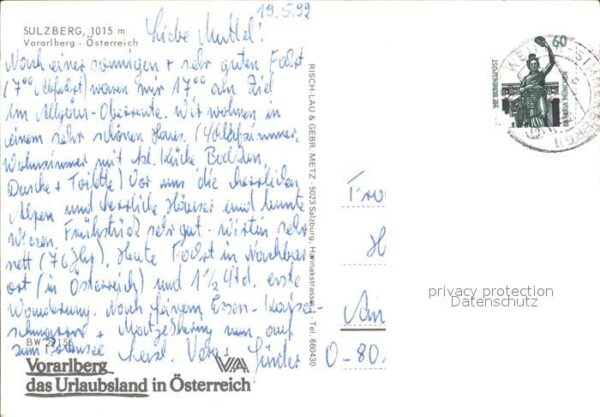 19.5.92
SULZBERG, 1015 m
Vorarlberg - Österreich
Liebe Mutti!
Nach einer sonnigen + sehr guten Fahrt
(7⁰⁰ Abfahrt) waren wir 17⁰⁰ am Ziel
im Allgäu-Oberreute. Wir wohnen in
einem sehr schönen Haus, (Schlafzimmer,
Wohnzimmer mit Küche Balkon,
Dusche + Toilette) Vor uns die herrlichen
Alpen und herrliche Häuser und bunte
Wiesen. Frühstück sehr gut - Wirtin sehr
nett (76 Jhr). Heute Fahrt in Nachbar
ort (in Österreich) und 1½ Std. erste
Wanderung. Nach feinem Essen - Kaiser-
schmarren + nun auf
zum Bodensee herzl. Günter
B.W 29156
Vorarlberg
das Urlaubsland in Österreich
VVA
RISCH-LAU & GEBR. METZ - 5023 Salzburg, Hannakstrasse, Tel. 660430
60
DEUTSCHE BUNDESPOST
BAVARIA MÜNCHEN
Fra
H
0-80
privacy protection
Datenschutz